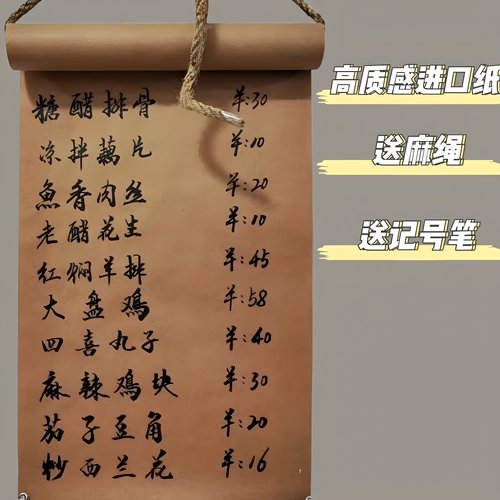 糖醋排骨 羊:30
凉拌藕片 羊:10
魚香肉丝 羊:20
老醋花生 羊:10
红焖羊排 羊:45
大盘鸡 羊:58
四喜丸子 羊:40
麻辣鸡块 羊:30
茄子豆角 羊:20
炒西兰花 羊:16
高质感进口纸
送麻绳
送记号笔